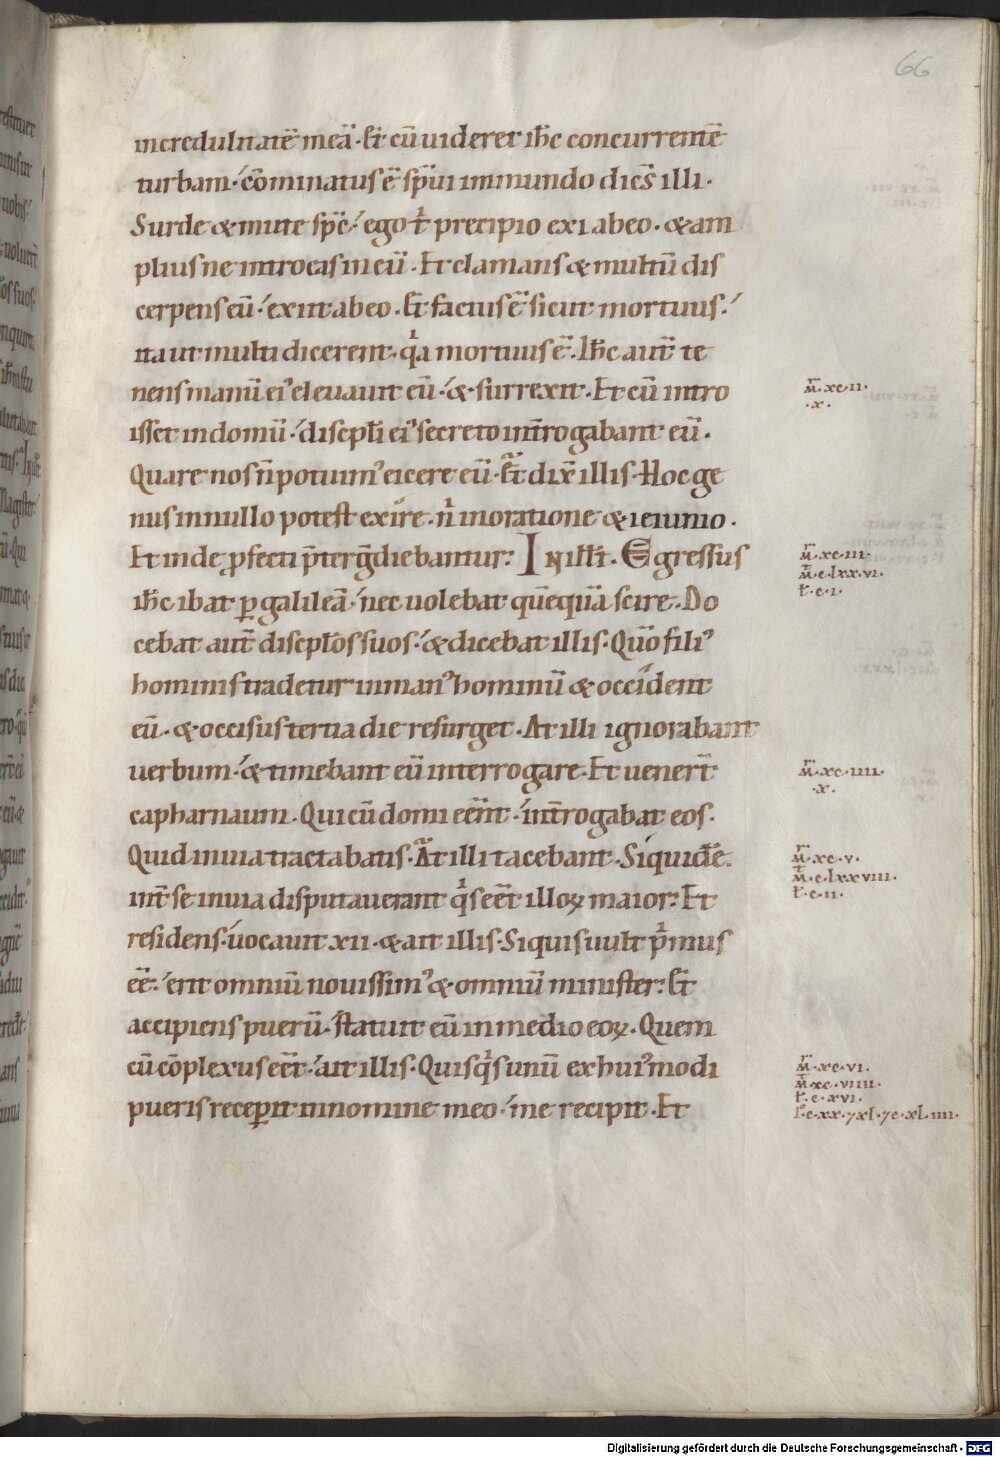 66
incredulitatē meā · Et cū uideret ih̅c concurrentē
turbam · cōminatus ē sp̅ui immundo dic̅s illi ·
Surde & mute sp̅c · ego t̅ precipio exi ab eo · & am
plius ne introeas in eū · Et clamans & multū dis
cerpens eū · exiit ab eo · Et factus ē sicut mortuus ·
ita ut multi dicerent · qa mortuus ē · Ih̅c aut̅ te
nens manū ei' eleuauit eū · & surrexit · Et cū intro
isset in domū · discipl̅i ei' secreto int̅rogabant eū ·
Quare nos n̅ potuim' eicere eū · Et dix̅ illis · Hoc ge
nus in nullo potest exire · n̅ in oratione & ieiunio ·
Et inde ꝓfecti p̅tergdiebantur : IN ill̅ t̅ · Egressus
ih̅c ibat ꝑ galileā · nec uolebat quēquā scire · Do
cebat aut̅ discip̅los suos · & dicebat illis · Qūo fili'
hominis tradetur in man' hominū & occident
eū · & occisus tertia die resurget · At illi ignorabant
uerbum · & timebant eū interrogare · Et uener̅t
capharnaum · Qui cū domi eēnt · int̅rogabat eos ·
Quid in uia tractabatis · At illi tacebant · Siquidē ·
int̅ se in uia disputauerant qs eēt illoꝝ maior : Et
residens · uocauit xii · & ait illis · Siquis uult p̅mus
eē · erit omniū nouissim' & omniū minister : Et
accipiens puerū · statuit eū in medio eoꝝ · Quem
cū cōplexus eēt · ait illis · Quisqs unū ex hui'modi
pueris receꝑit in nomine meo · me recipit · Et
m̅r · xc · ii ·
· x ·
m̅r · xc · iii ·
m̅t · c · lxx · vi ·
l̅ · c · i ·
m̅r · xc · iiii ·
· x ·
m̅r · xc · v ·
m̅t · c · lxx viii ·
l̅ · c · ii ·
m̅r · xc · vi ·
m̅t · xc · viiii ·
l̅ · c · xvi ·
i̅ · c · xx · 7 xl · 7 c · xl · iiii ·
Digitalisierung gefördert durch die Deutsche Forschungsgemeinschaft - DFG